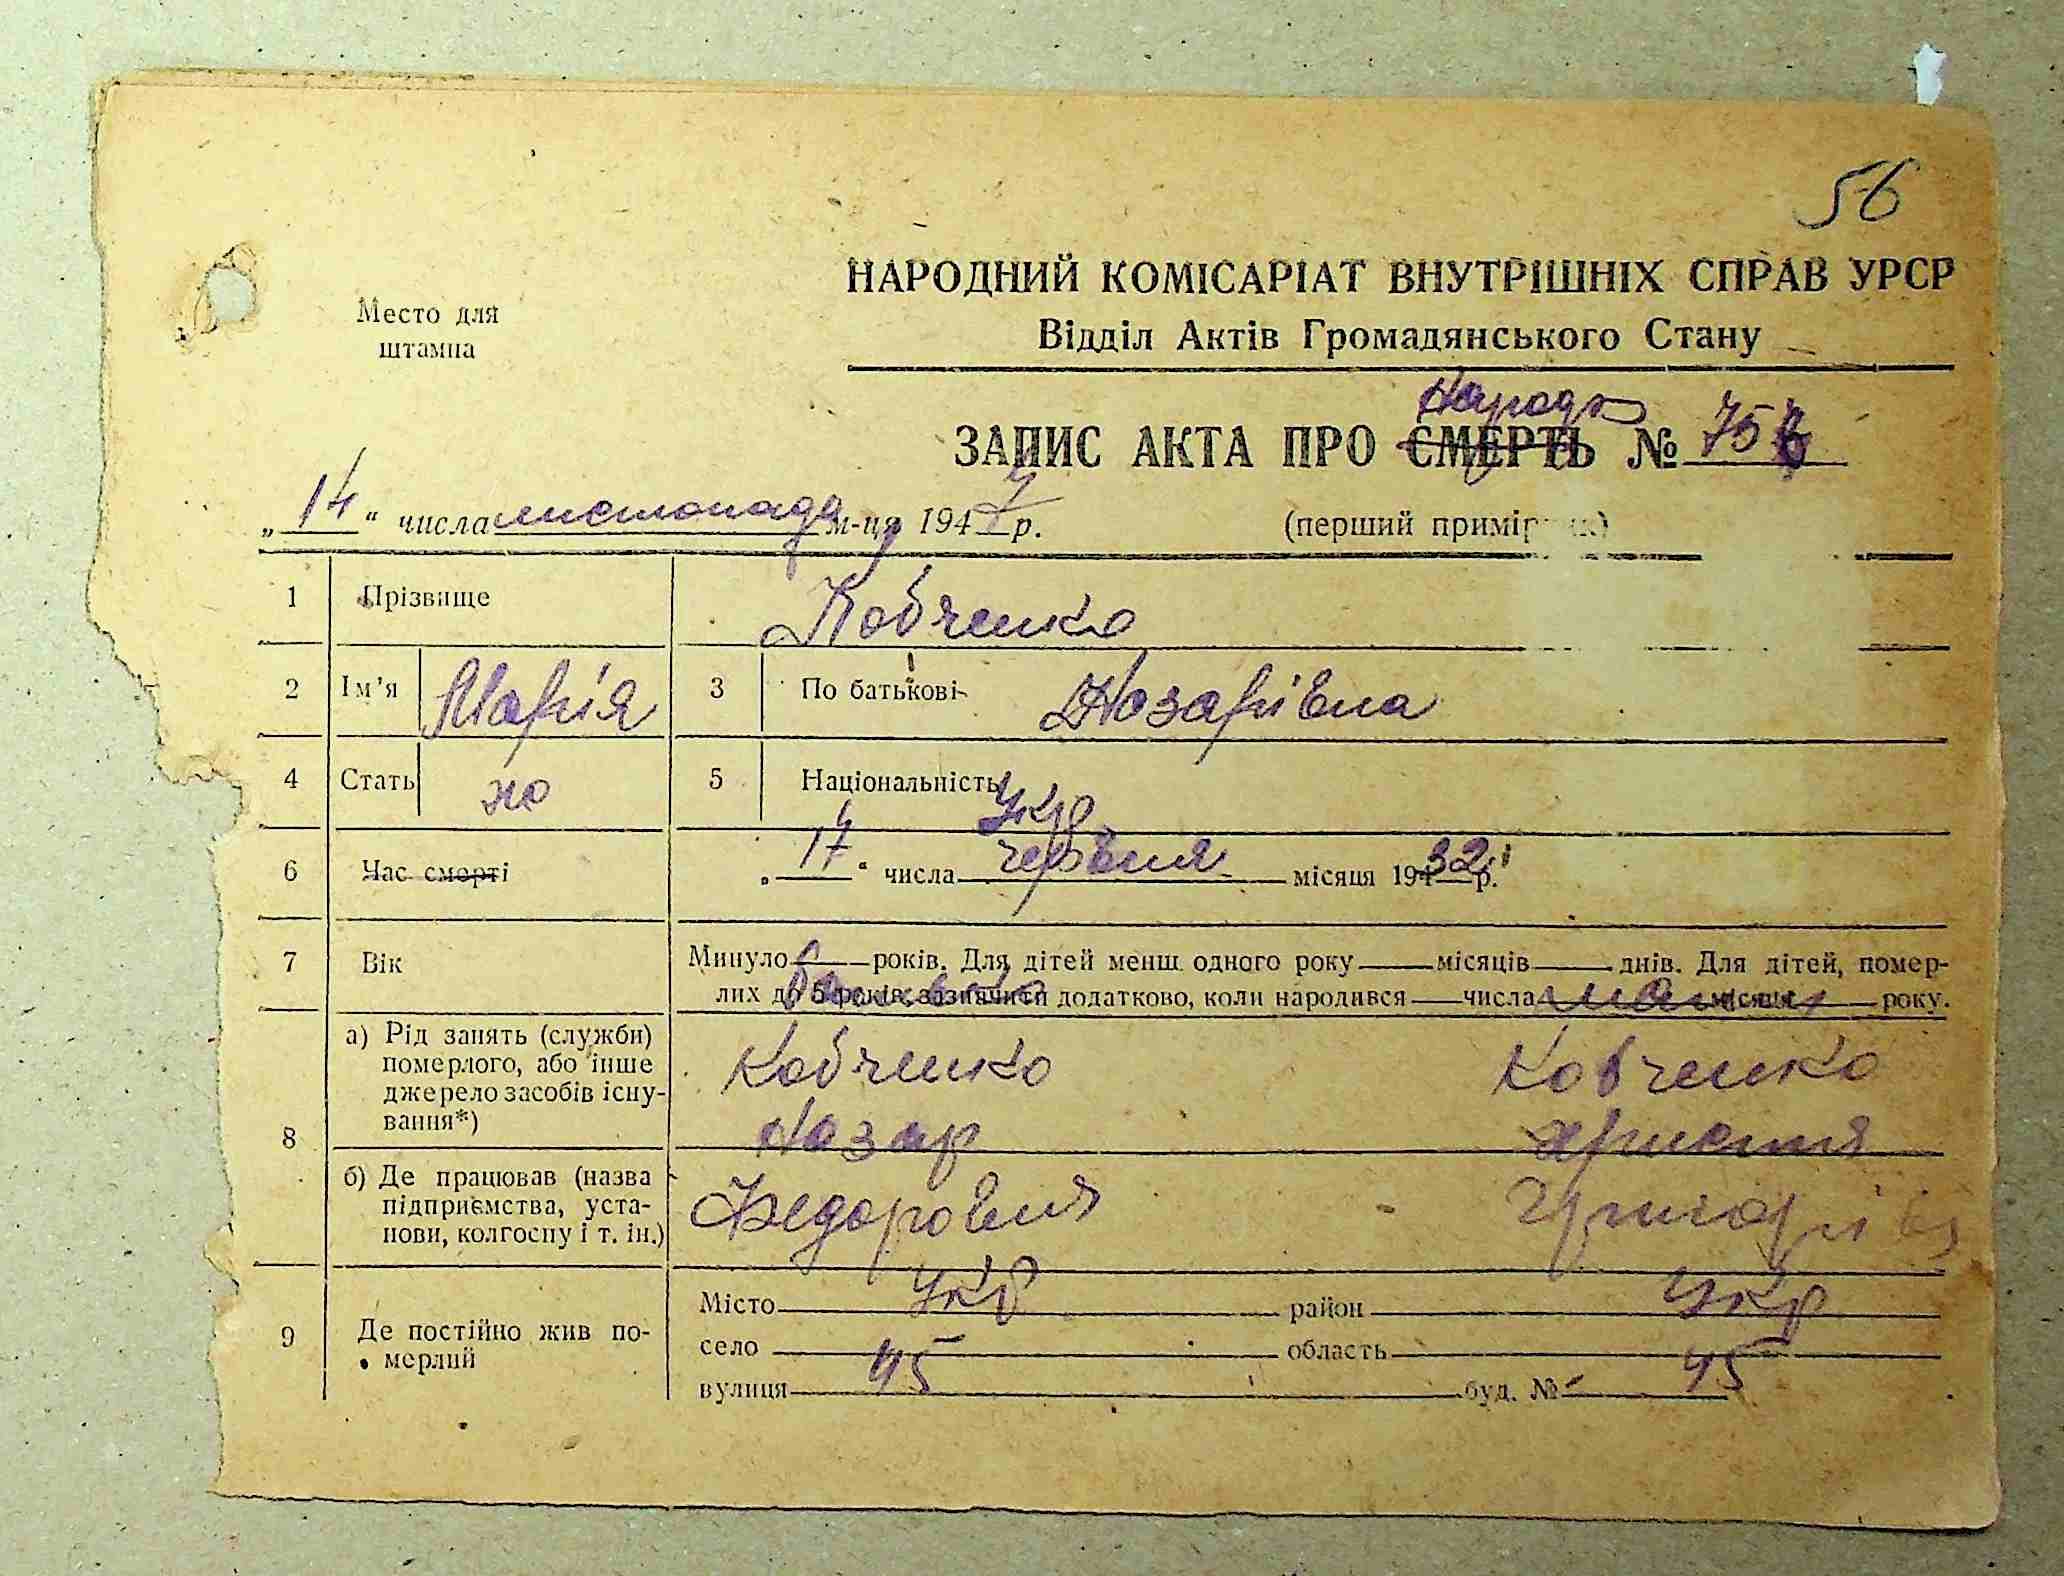 56
НАРОДНИЙ КОМІСАРІАТ ВНУТРІШНІХ СПРАВ УРСР
Место для
штампа
Відділ Актів Громадянського Стану
Народж
ЗАПИС АКТА ПРО СМЕРТЬ № 75
„14“ числа листопада м-ця 1947 р. (перший примір к)
1 Прізвище Ковченко
2 Ім'я Марія 3 По батькові Назарівна
4 Стать жо 5 Національність Укр
6 Час смерті „17“ числа червня місяця 1932 р.
7 Вік Минуло років. Для дітей менш одного року місяців днів. Для дітей, помер-
лих до 5 років, зазначити додатково, коли народився числа місяця року.
Батько мати
8 а) Рід занять (служби)
померлого, або інше
джерело засобів існу-
вання*)
Ковченко Ковченко
Назар Христия
б) Де працював (назва
підприємства, уста-
нови, колгоспу і т. ін.)
Федорович Григорів
9 Де постійно жив по-
мерлий
Місто Укр район Укр
село 45 область 45
вулиця буд. №